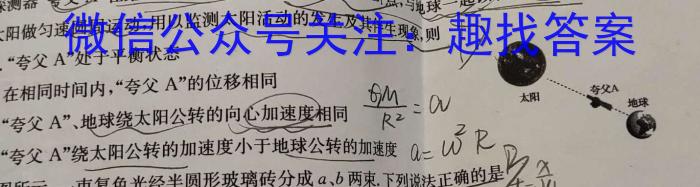 探测器
与地球一起
太阳做匀速圆周运动,用以监测太阳活动的发生及其伴生现象,则
微信公众号关注:趣找答案
“夸父 A”处于平衡状态
在相同时间内,“夸父 A”的位移相同
“夸父 A”、地球绕太阳公转的向心加速度相同
“夸父 A”绕太阳公转的加速度小于地球公转的加速度
太阳
夸父A
地球
GM/R² = a
a = ω²R
一束复色光经半圆形玻璃砖分成 a、b 两束,下列说法正确的是